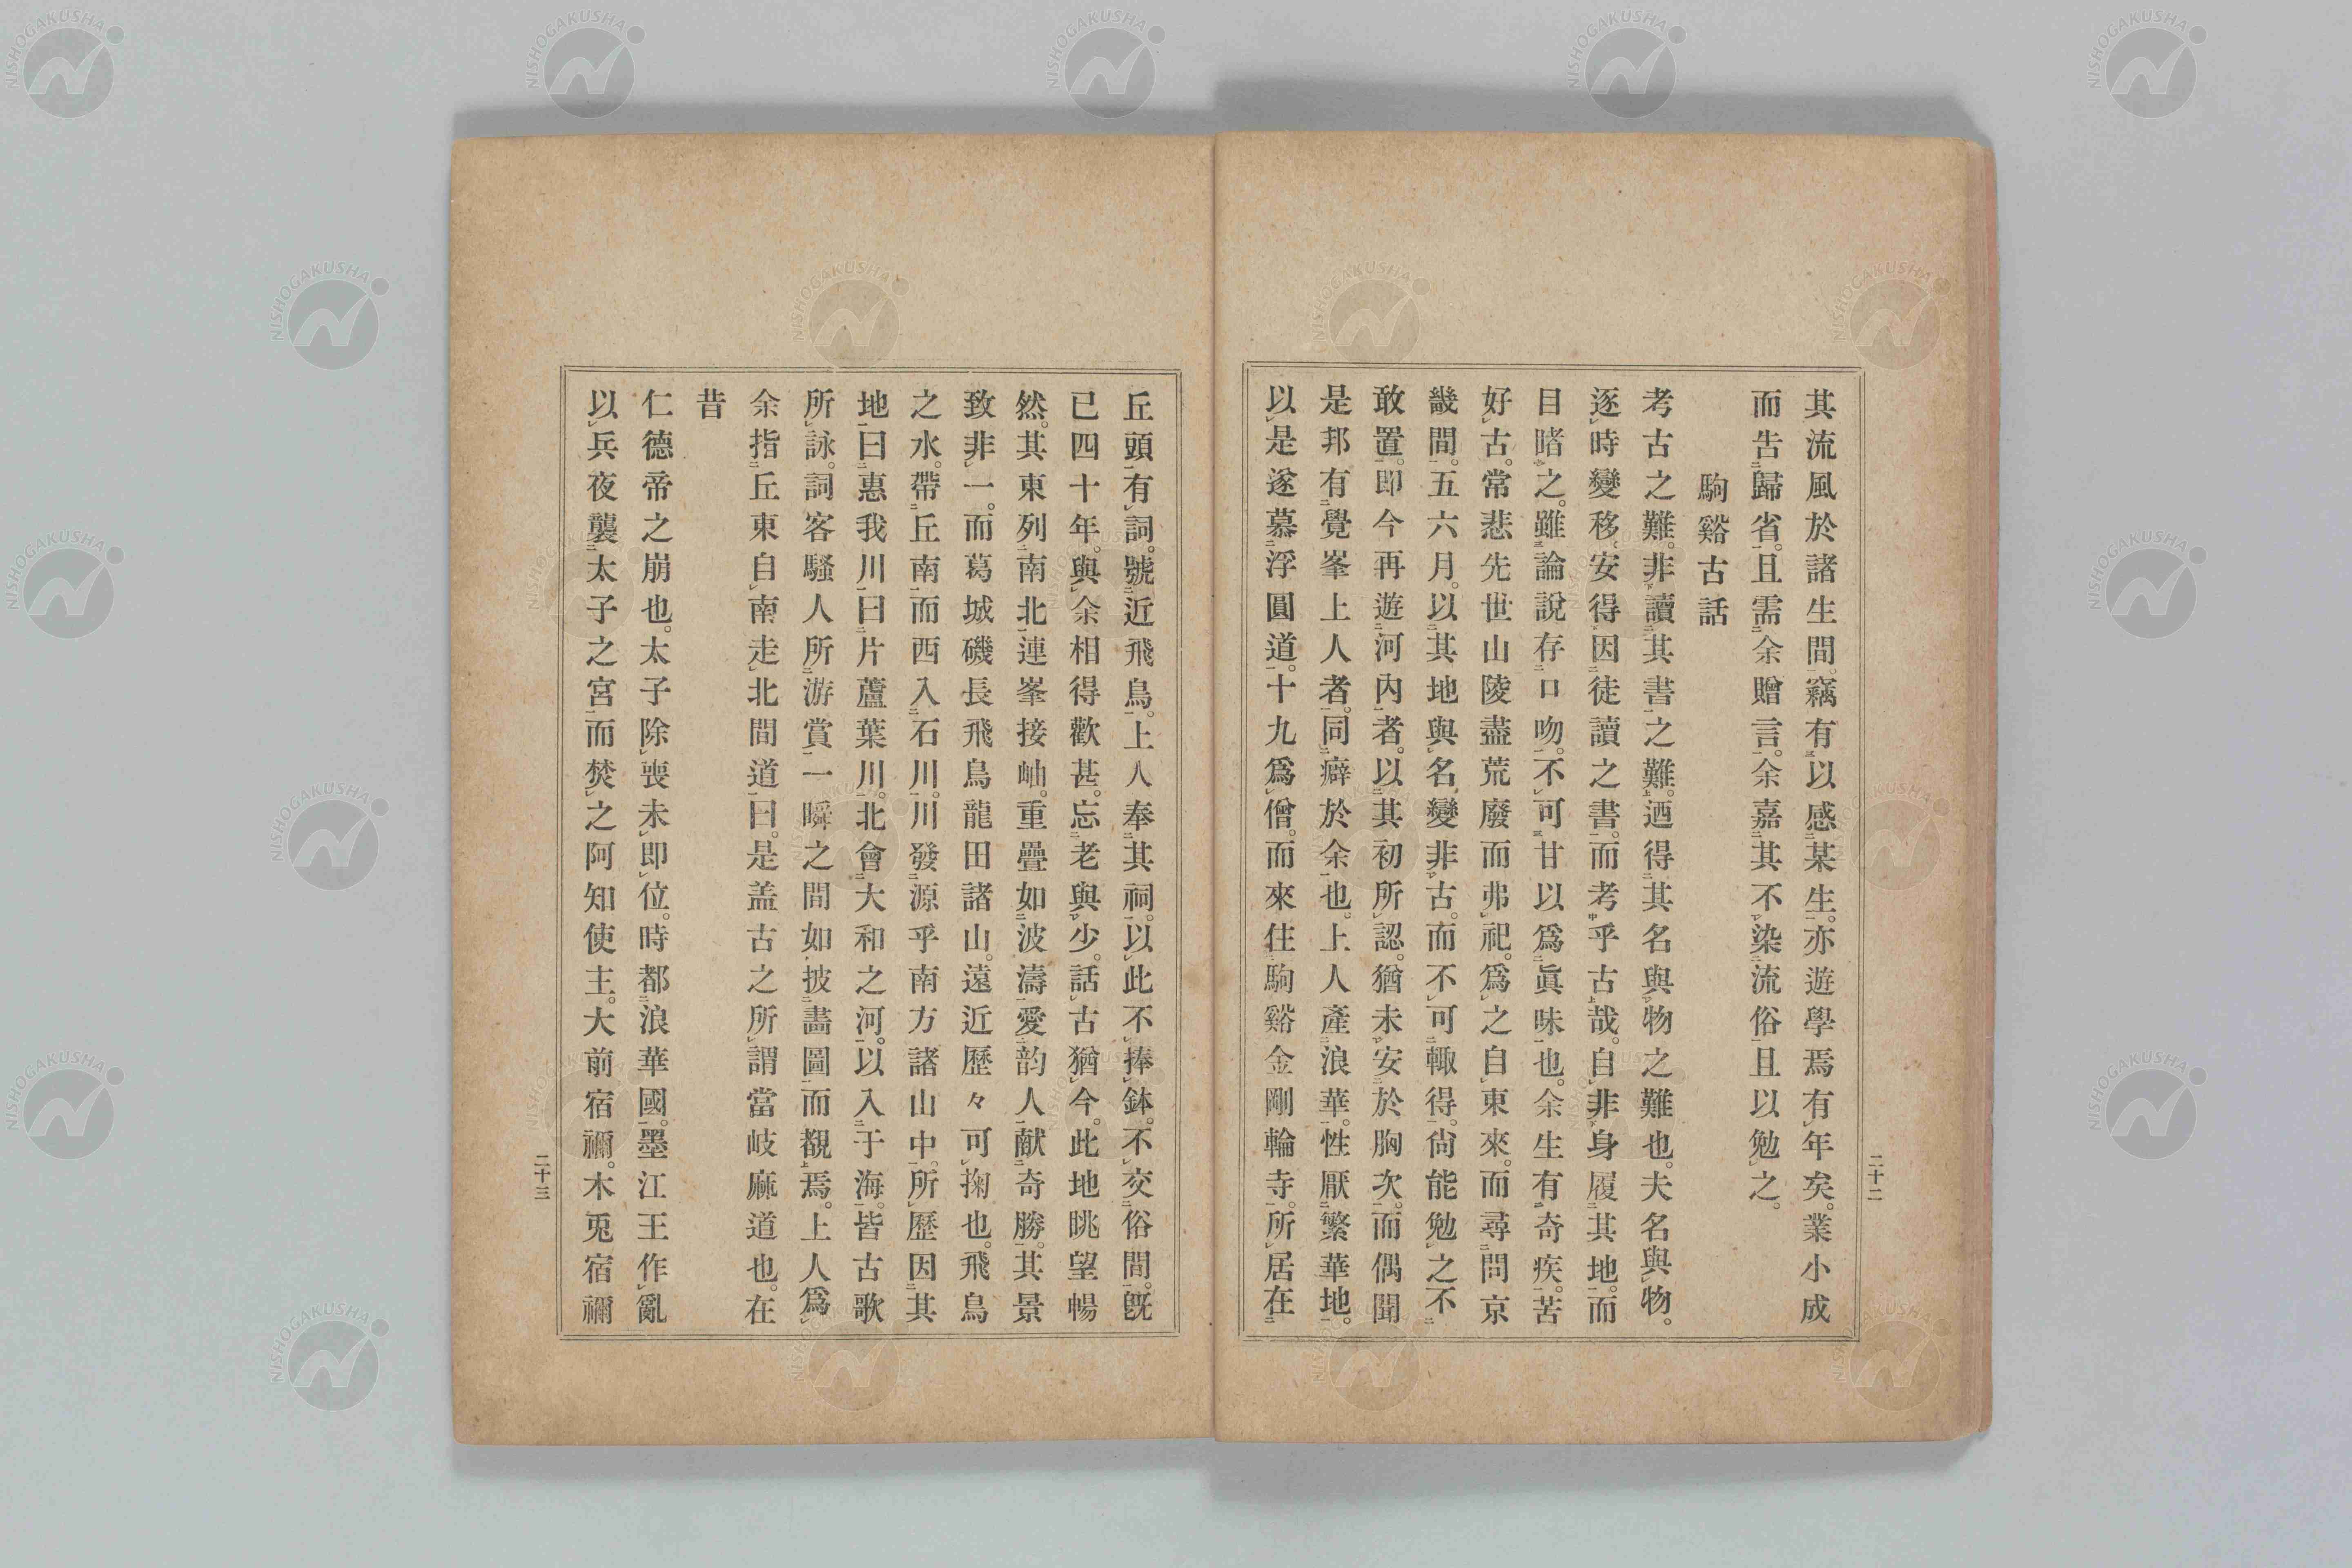 其流風於諸生間。竊有以感某生。亦遊學焉有年矣。業小成
而告歸省。且需余贈言。余嘉其不染流俗且以勉之。
駒谿古話
考古之難。非讀其書之難。迺得其名與物之難也。夫名與物。
逐時變移。安得因徒讀之書。而考乎古哉。自非身履其地。而
目睹之。雖論說存口吻。不可甘以爲眞味也。余生有奇疾。苦
好古。常悲先世山陵盡荒廢而弗祀。爲之自東來。而尋問京
畿間。五六月。以其地與名變非古。而不可輙得。尙能勉之不
敢置。即今再遊河內者。以其初所認。猶未安於胸次。而偶聞
是邦有覺峯上人者。同癖於余也。上人產浪華。性厭繁華地。
以是遂慕浮圓道。十九爲僧。而來住駒谿金剛輪寺。所居在
二十二
丘頭有詞。號近飛鳥。上人奉其祠。以此不捧鉢。不交俗間。旣
已四十年。與余相得歡甚。忘老與少。話古猶今。此地眺望暢
然。其東列南北連峯接岫。重疊如波濤愛韵人献奇勝。其景
致非一。而葛城磯長飛鳥龍田諸山。遠近歷々可掬也。飛鳥
之水。帶丘南而西入石川。川發源乎南方諸山中。所歷因其
地曰惠我川曰片蘆葉川。北會大和之河。以入于海。皆古歌
所詠。詞客騷人所游賞一瞬之間如披畵圖而覩焉。上人爲
余指丘東自南走北間道曰。是盖古之所謂當岐麻道也。在
昔
仁德帝之崩也。太子除喪未即位。時都浪華國。墨江王作亂
以兵夜襲太子之宮而焚之阿知使主。大前宿禰。木兎宿禰
二十三
NISHOGAKUSHA